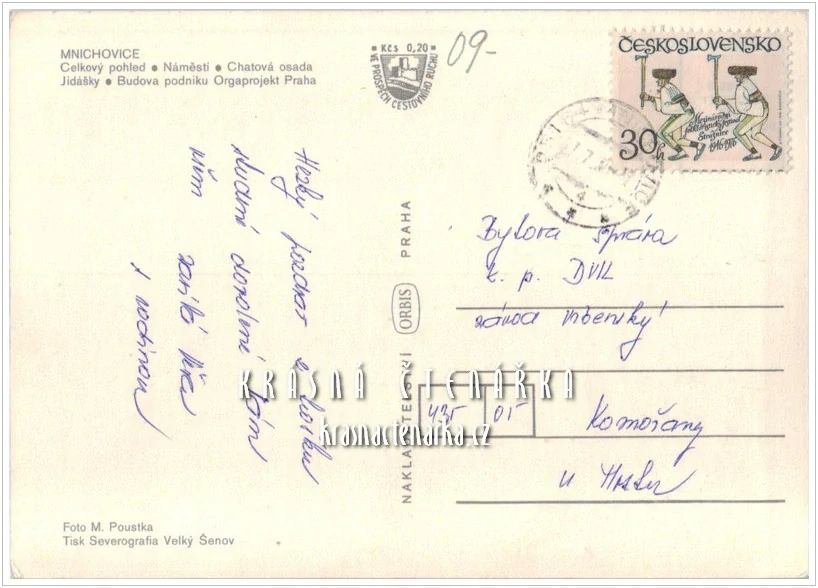 MNICHOVICE
Celkový pohled ● Náměstí ● Chatová osada
Jidášky ● Budova podniku Orgaprojekt Praha
Kčs 0,20
VE PROSPĚCH CESTOVNÍHO RUCHU
09-
ČESKOSLOVENSKO
Mezinárodní
folklorní festival
Strážnice
1946 1976
30h
Hezký pozdrav z
dovolené
Vám
s rodinou
NAKLADATELSTVÍ ORBIS PRAHA
Bytová správa
k. p. DVIL
závod
Komořany
u
435 01
KRÁSNÁ ČTENÁŘKA
krasnactenarka.cz
Foto M. Poustka
Tisk Severografia Velký Šenov